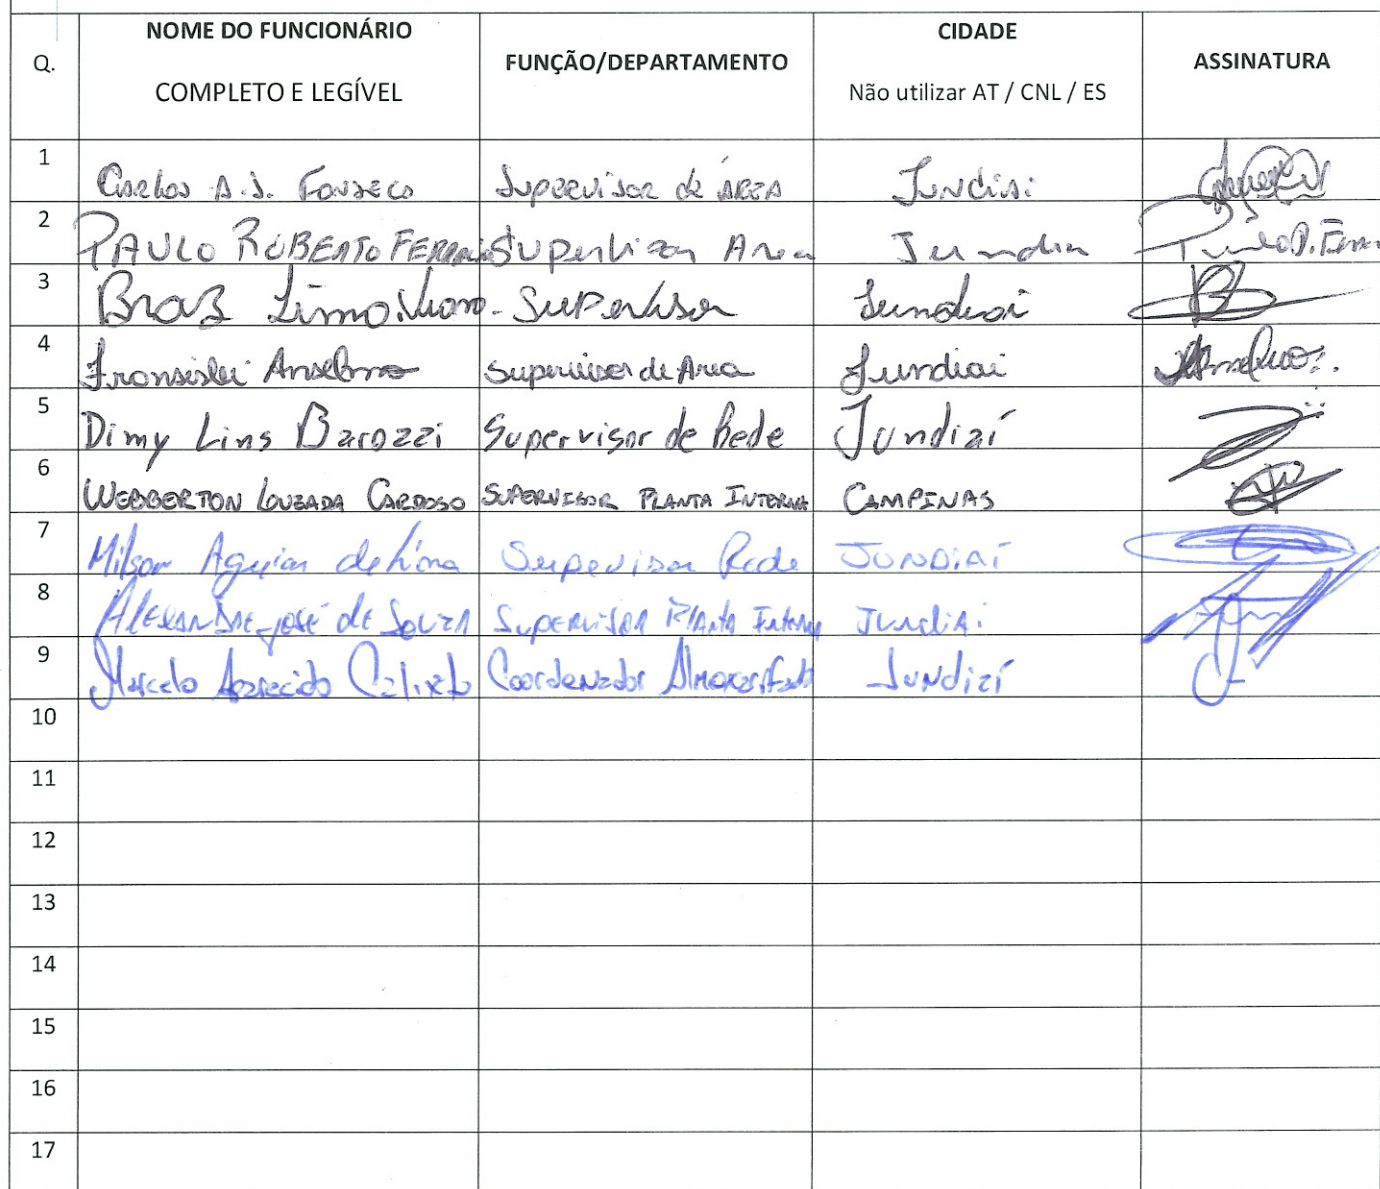 NOME DO FUNCIONÁRIO
COMPLETO E LEGÍVEL
Q.
FUNÇÃO/DEPARTAMENTO
CIDADE
Não utilizar AT / CNL / ES
ASSINATURA
1 Carlos A.J. Fonseca Supervisor de ÁREA Jundiai
2 PAULO ROBERTO Supervisor Area Jundiai
3 Braz Supervisor Jundiai
4 Anselmo Supervisor de Area Jundiai
5 Dimy Lins Barozzi Supervisor de Rede Jundiaí
6 WEBBERTON LOUZADA CARDOSO SUPERVISOR PLANTA INTERNA CAMPINAS
7 Milson Aguiar de Lima Supervisor Rede JUNDIAÍ
8 ALEXANDRE JOSÉ de SOUZA SUPERVISOR Planta Interna JUNDIAI
9 Marcelo Aparecido Calixto Coordenador Almoxarifado Jundiaí
10
11
12
13
14
15
16
17